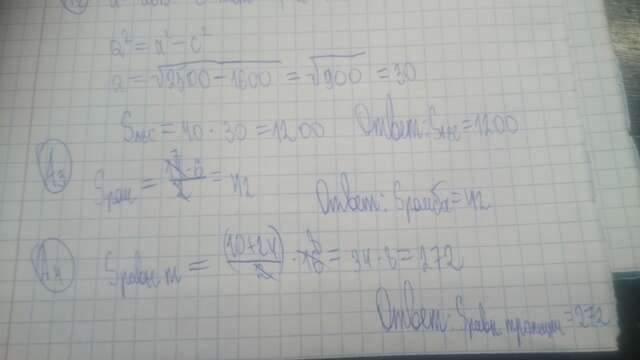 a² = x² - c²
a = √2500 - 1600 = √900 = 30
= 40 · 30 = 1200 Ответ: = 1200
A3 Sром = 14 · 6 / 2 = 42
Ответ: Sромба = 42
A4 Sравн т = (10 + 24) / 2 · 16 = 34 · 8 = 272
Ответ: Sравн трапеции = 272